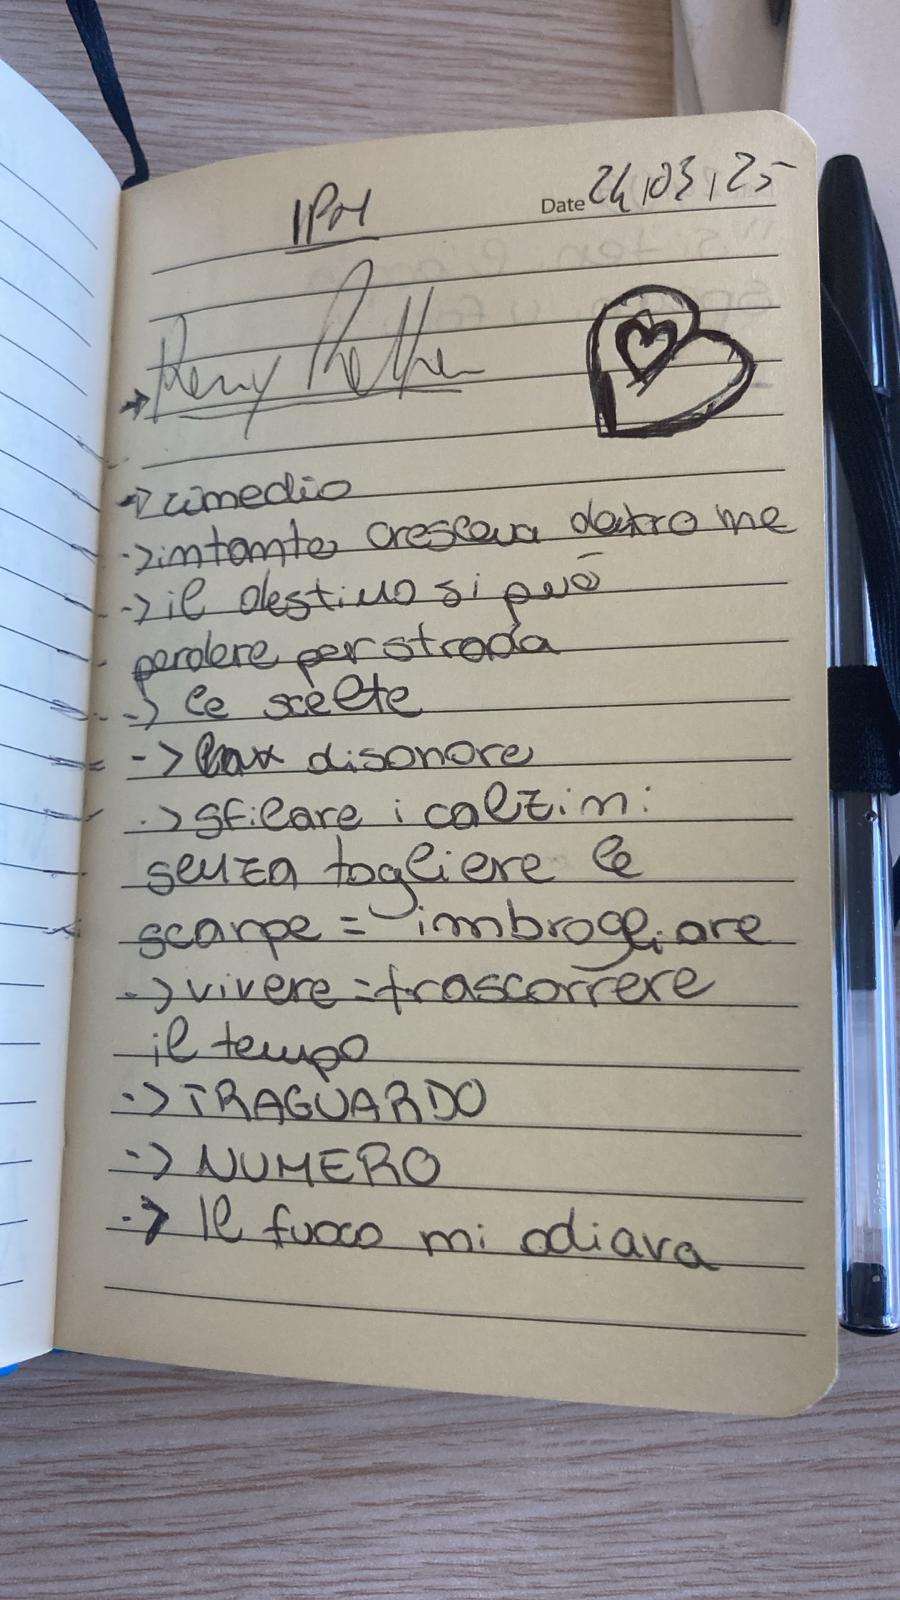 IPM
Date 24,03,25
→
→ rimedio
→ intanto cresceva dentro me
→ il destino si può
perdere per strada
→ le scelte
→ disonore
→ sfilare i calzini
senza togliere le
scarpe = imbrogliare
→ vivere = trascorrere
il tempo
→ TRAGUARDO
→ NUMERO
→ Il fuoco mi odiava